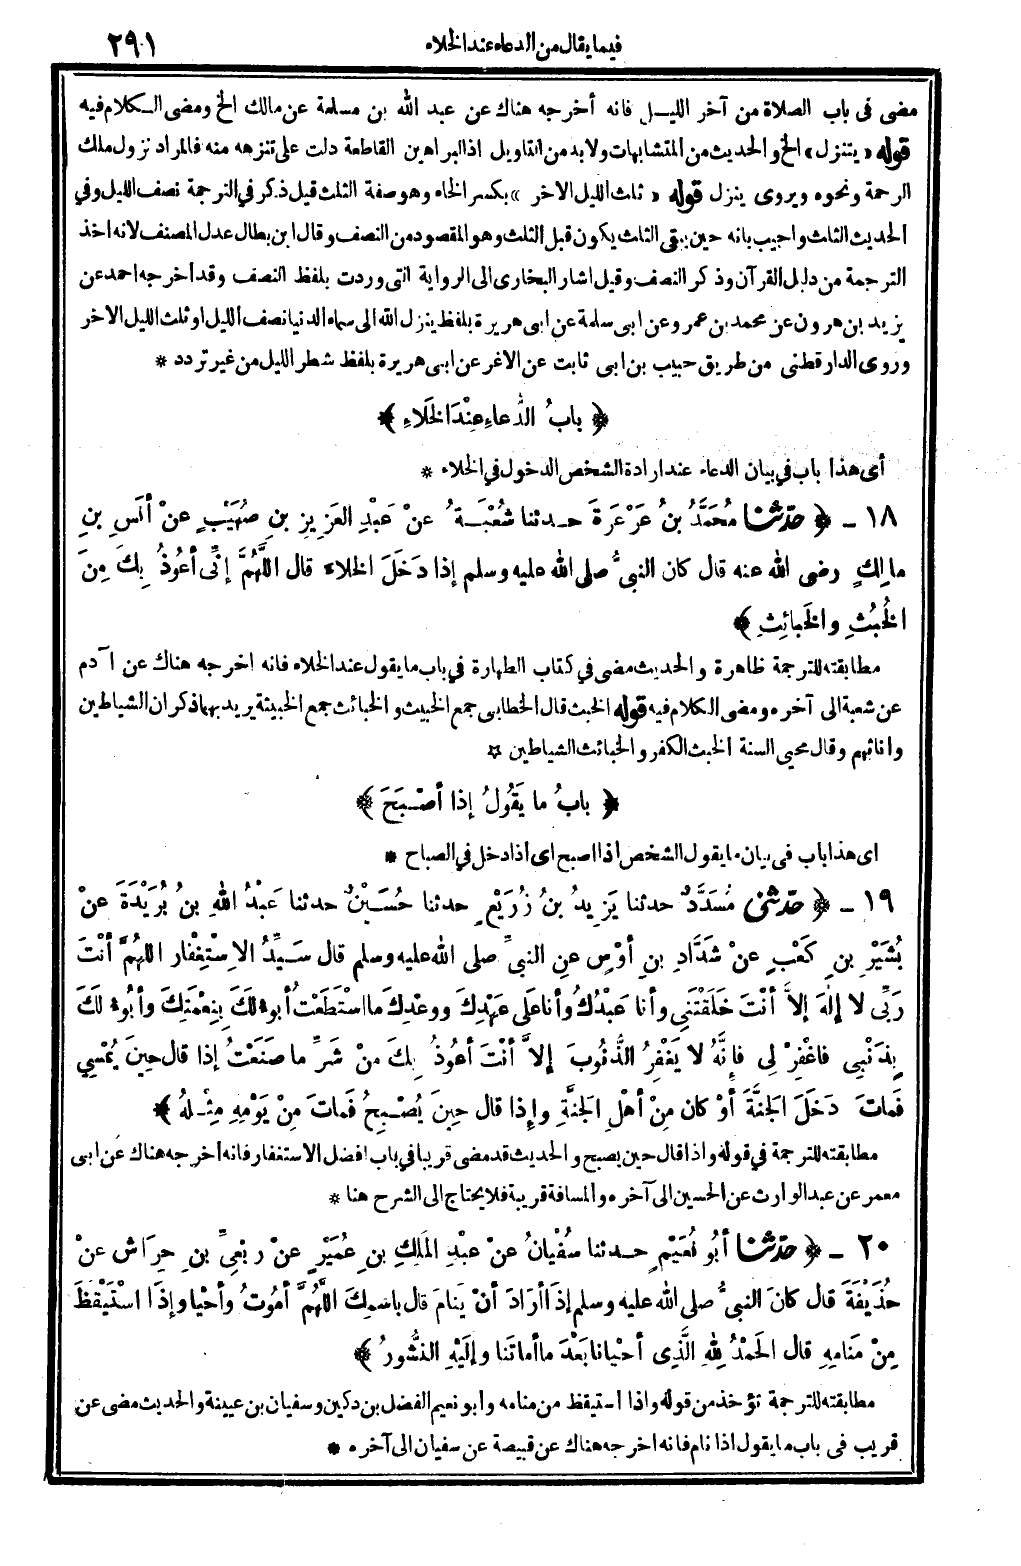 فيما يقال من الدعاء عند الخلاء
٢٩١
مضى فى باب الصلاة من آخر الليل فانه أخرجه هناك عن عبد الله بن مسلمة عن مالك الخ ومضى الكلام فيه
قوله «يتنزل» الخ والحديث من المتشابهات ولابد من التاويل اذ البراهين القاطعة دلت على تنزهه منه فالمراد نزول ملك
الرحمة ونحوه ويروى ينزل قوله «ثلث الليل الاخر» بكسر الخاء وهو صفة الثلث قيل ذكر في الترجمة نصف الليل وفي
الحديث الثلث واجيب بانه حين يبقى الثلث يكون قبل الثلث وهو المقصود من النصف وقال ابن بطال عدل المصنف لانه اخذ
الترجمة من دليل القرآن وذكر النصف وقيل اشار البخارى الى الرواية التى وردت بلفظ النصف وقد أخرجه احمد عن
يزيد بن هرون عن محمد بن عمرو عن ابى سلمة عن ابى هريرة بلفظ ينزل الله الى سماء الدنيا نصف الليل او ثلث الليل الاخر
وروى الدارقطنى من طريق حبيب بن ابى ثابت عن الاغر عن ابى هريرة بلفظ شطر الليل من غير تردد *
﴿ بابُ الدُّعاءِ عِنْدَ الخَلَاءِ ﴾
أى هذا باب في بيان الدعاء عند ارادة الشخص الدخول في الخلاء *
١٨ - ﴿ حدّثنا مُحَمَّدُ بنُ عَرْعَرَةَ حدثنا شُعْبَةُ عنْ عَبْدِ العَزِيزِ بنِ صُهَيْبٍ عنْ أنَسِ بنِ
مالِكٍ رضى الله عنه قال كان النبىُّ صلى الله عليه وسلم إذا دَخَلَ الخلاءَ قال اللَّهُمَّ إنِّى أعُوذُ بِكَ مِنَ
الخُبُثِ والخَبائِثِ ﴾
مطابقته للترجمة ظاهرة والحديث مضى في كتاب الطهارة في باب ما يقول عند الخلاء فانه اخرجه هناك عن آدم
عن شعبة الى آخره ومضى الكلام فيه قوله الخبث قال الخطابى جمع الخبيث والخبائث جمع الخبيثة يريد بهما ذكران الشياطين
واناثهم وقال محيى السنة الخبث الكفر والخبائث الشياطين *
﴿ بابُ ما يَقُولُ إذا أصْبَحَ ﴾
اى هذا باب فى بيان ما يقول الشخص اذا اصبح اى اذا دخل في الصباح *
١٩ - ﴿ حدّثنى مُسَدَّدٌ حدثنا يَزِيدُ بنُ زُرَيْعٍ حدثنا حُسَيْنٌ حدثنا عَبْدُ اللهِ بنُ بُرَيْدَةَ عنْ
بُشَيْرِ بنِ كَعْبٍ عنْ شَدَّادِ بنِ أوْسٍ عنِ النبىِّ صلى الله عليه وسلم قال سَيِّدُ الاِسْتِغْفارِ اللهُمَّ أنْتَ
رَبِّى لا إلَهَ إلاَّ أنْتَ خَلَقْتَنِي وأنا عَبْدُكَ وأنا على عَهْدِكَ ووعْدِكَ ما اسْتَطَعْتُ أبُوءُ لَكَ بِنِعْمَتِكَ وأبُوءُ لَكَ
بِذَنْبِى فاغْفِرْ لِى فإنَّهُ لا يَغْفِرُ الذُّنُوبَ إلاَّ أنْتَ أعُوذُ بِكَ مِنْ شَرِّ ما صَنَعْتُ إذا قال حِينَ يُمْسِي
فَماتَ دَخَلَ الجَنَّةَ أوْ كان مِنْ أهْلِ الجَنَّةِ وإذا قال حِينَ يُصْبِحُ فَماتَ مِنْ يَوْمِهِ مِثْلَهُ ﴾
مطابقته للترجمة في قوله واذا قال حين يصبح والحديث قد مضى قريبا في باب افضل الاستغفار فانه أخرجه هناك عن ابى
معمر عن عبد الوارث عن الحسين الى آخره والمسافة قريبة فلا يحتاج الى الشرح هنا *
٢٠ - ﴿ حدّثنا أبُو نُعَيْمٍ حدثنا سُفْيانُ عنْ عَبْدِ المَلِكِ بنِ عُمَيْرٍ عنْ رِبْعِىِّ بنِ حِرَاشٍ عنْ
حُذَيْفَةَ قال كانَ النبىُّ صلى الله عليه وسلم إذَا أرَادَ أنْ يَنامَ قال باسْمِكَ اللَّهُمَّ أمُوتُ وأحْيا وإذَا اسْتَيْقَظَ
مِنْ مَنامِهِ قال الحَمْدُ لِلهِ الَّذِى أحْيانا بَعْدَ ما أماتَنا وإلَيْهِ النُّشُورُ ﴾
مطابقته للترجمة تؤخذ من قوله واذا استيقظ من منامه وأبو نعيم الفضل بن دكين وسفيان بن عيينة والحديث مضى عن
قريب فى باب ما يقول اذا نام فانه اخرجه هناك عن قبيصة عن سفيان الى آخره *